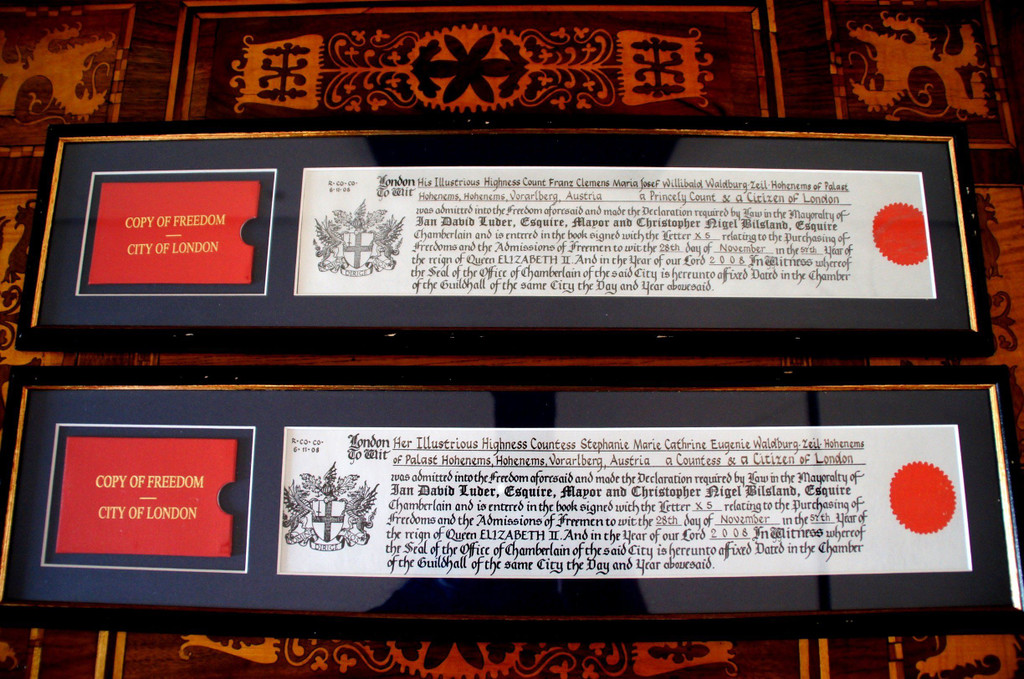 COPY OF FREEDOM
CITY OF LONDON
R·CO·CO·
6·11·08
London
To Wit
His Illustrious Highness Count Franz Clemens Maria Josef Willibald Waldburg-Zeil-Hohenems of Palast
Hohenems, Hohenems, Vorarlberg, Austria a Princely Count & a Citizen of London
was admitted into the Freedom aforesaid and made the Declaration required by Law in the Mayoralty of
Ian David Luder, Esquire, Mayor and Christopher Nigel Bilsland, Esquire
Chamberlain and is entered in the book signed with the Letter X5 relating to the Purchasing of
Freedoms and the Admissions of Freemen to wit the 28th day of November in the 57th Year of
the reign of Queen ELIZABETH II. And in the Year of our Lord 2008 In Witness whereof
the Seal of the Office of Chamberlain of the said City is hereunto affixed Dated in the Chamber
of the Guildhall of the same City the Day and Year abovesaid.
DIRIGE
COPY OF FREEDOM
CITY OF LONDON
R·CO·CO·
6·11·08
London
To Wit
Her Illustrious Highness Countess Stephanie Marie Cathrine Eugenie Waldburg-Zeil-Hohenems
of Palast Hohenems, Hohenems, Vorarlberg, Austria a Countess & a Citizen of London
was admitted into the Freedom aforesaid and made the Declaration required by Law in the Mayoralty of
Ian David Luder, Esquire, Mayor and Christopher Nigel Bilsland, Esquire
Chamberlain and is entered in the book signed with the Letter X5 relating to the Purchasing of
Freedoms and the Admissions of Freemen to wit the 28th day of November in the 57th Year of
the reign of Queen ELIZABETH II. And in the Year of our Lord 2008 In Witness whereof
the Seal of the Office of Chamberlain of the said City is hereunto affixed Dated in the Chamber
of the Guildhall of the same City the Day and Year abovesaid.
DIRIGE